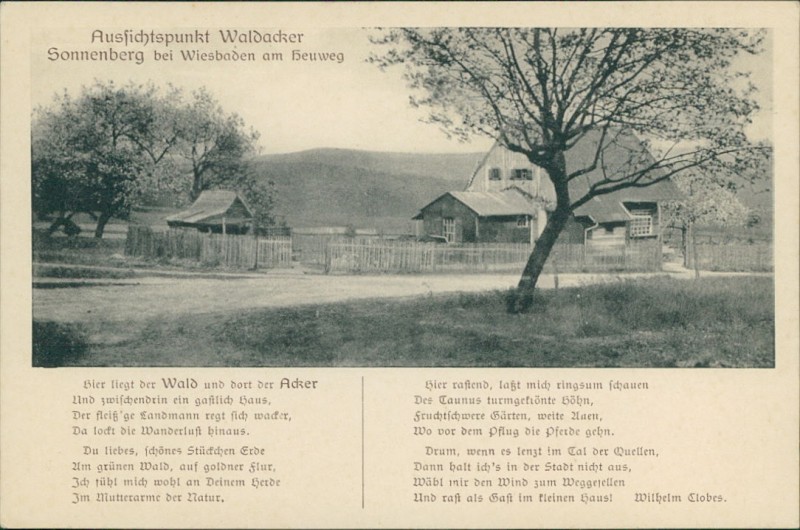 Aussichtspunkt Waldacker
Sonnenberg bei Wiesbaden am Heuweg
Hier liegt der Wald und dort der Acker
Und zwischendrin ein gastlich Haus,
Der fleiß'ge Landmann regt sich wacker,
Da lockt die Wanderlust hinaus.
Du liebes, schönes Stückchen Erde
Am grünen Wald, auf goldner Flur,
Ich fühl mich wohl an Deinem Herde
Im Mutterarme der Natur.
Hier rastend, laßt mich ringsum schauen
Des Taunus turmgekrönte Höhn,
Fruchtschwere Gärten, weite Auen,
Wo vor dem Pflug die Pferde gehn.
Drum, wenn es lenzt im Tal der Quellen,
Dann halt ich's in der Stadt nicht aus,
Wähl mir den Wind zum Weggesellen
Und rast als Gast im kleinen Haus! Wilhelm Clobes.